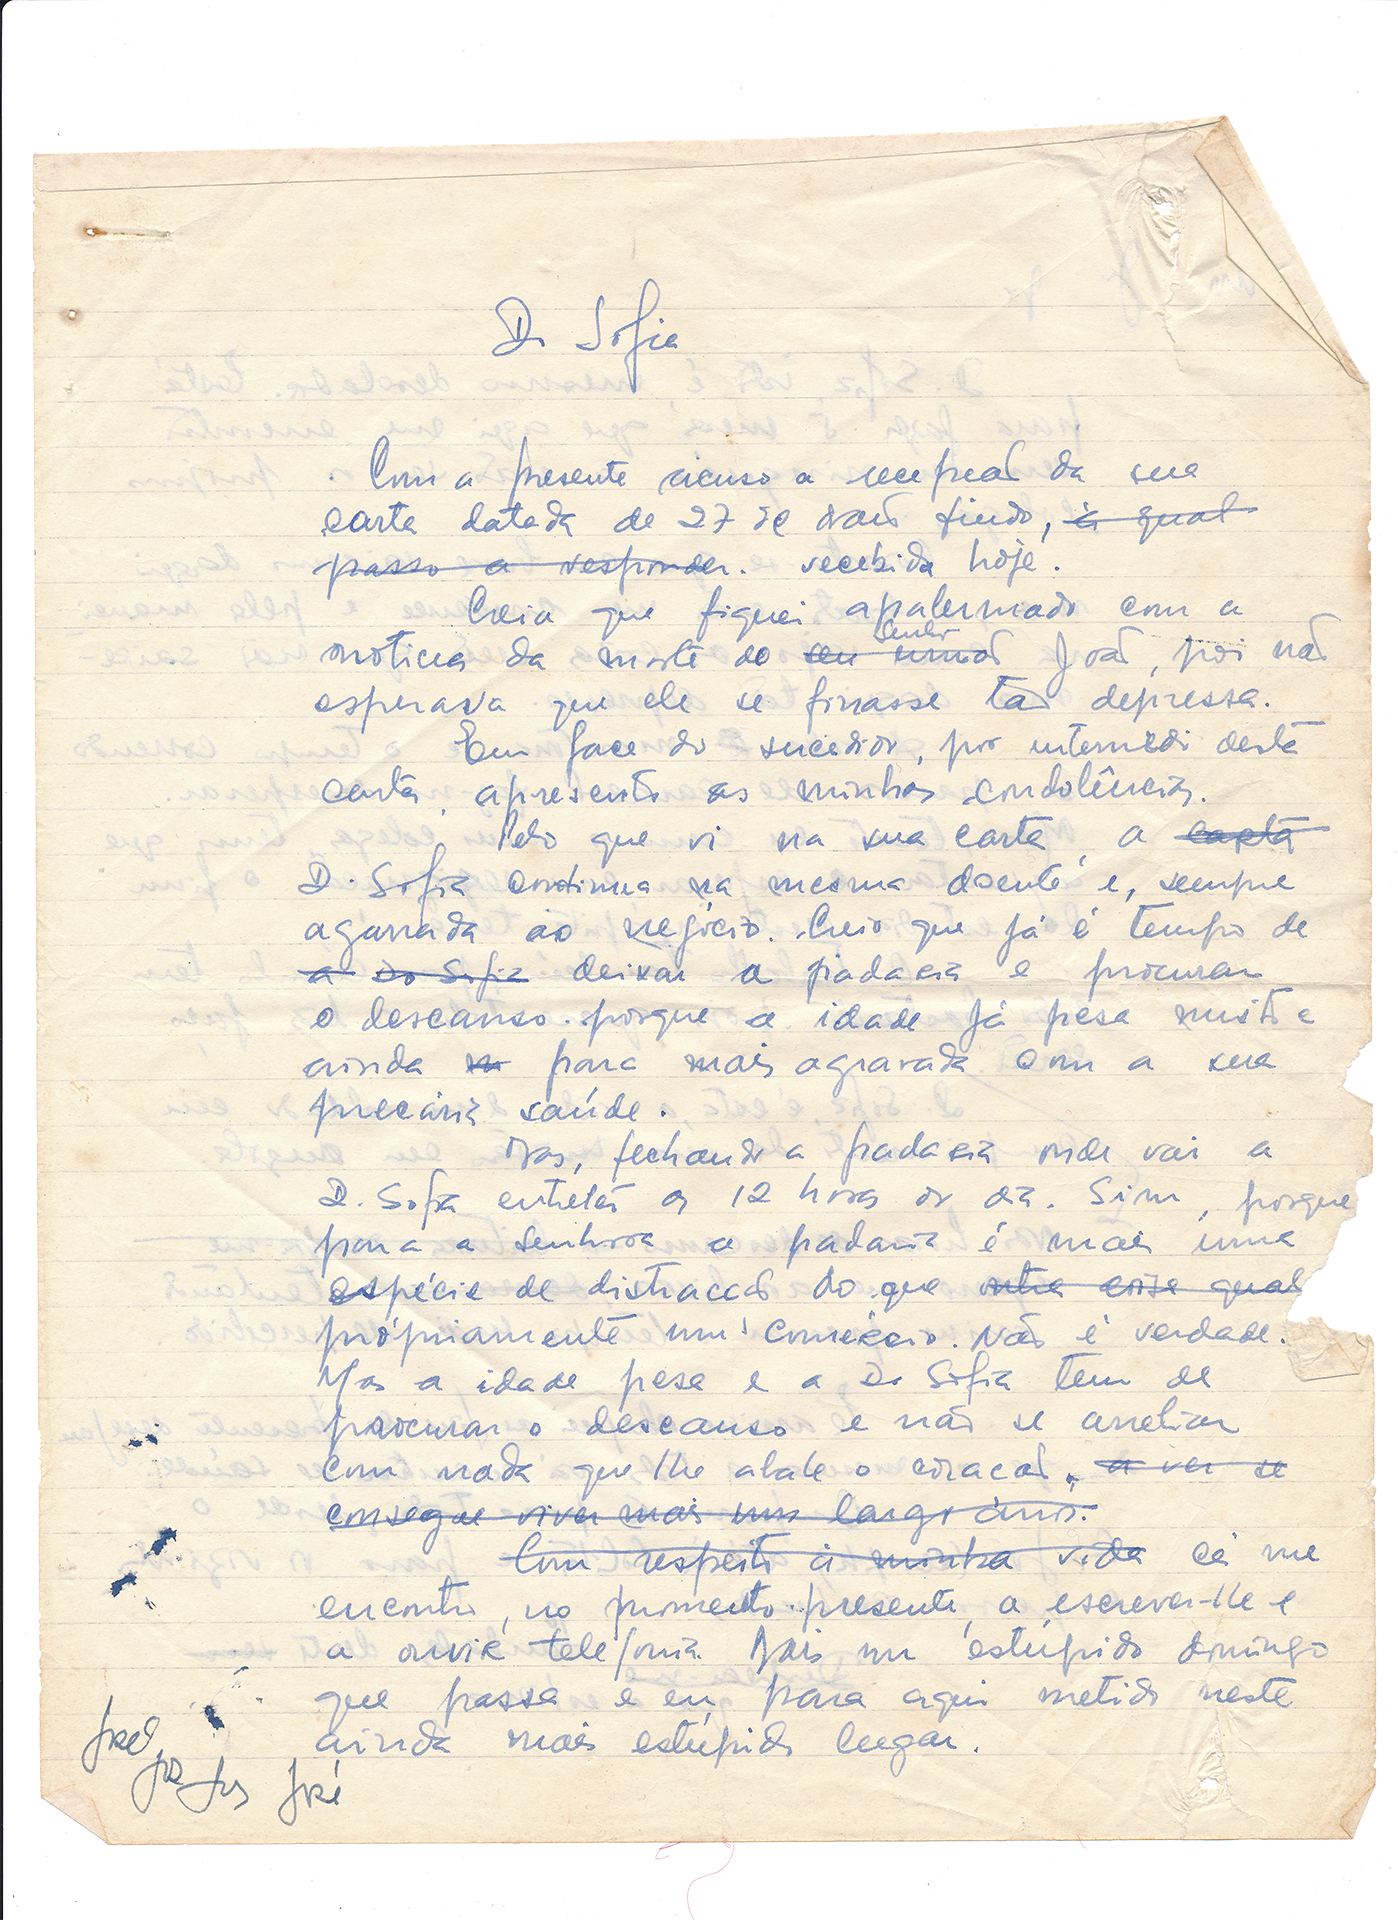 D. Sofia
Com a presente acuso a recepção da sua
carta datada de 27 de maio findo, à qual
passo a responder. recebida hoje.
Creia que fiquei apalermado com a
senhor
noticia da morte do seu irmão João, poi não
esperava que ele se finasse tão depressa.
Em face do sucedido, por intermédi desta
carta, apresento as minhas condolências.
Pelo que vi na sua carta, a carta
D. Sofia continua na mesma doente e, sempre
agarrada ao negócio. Creio que já é tempo de
a Do Sofia deixar a padaria e procurar
o descanso. porque a idade já pesa muito e
ainda para mais agravada com a sua
precária saúde.
Mas, fechando a padaria onde vai a
D. Sofia entreter as 12 horas do dia. Sim, porque
para a senhora a padaria é mais uma
espécie de distracção do que outra coisa qual
pròpriamente um comércio. Não é verdade.
Mas a idade pesa e a D. Sofia tem de
procurar o descanso e não se arreliar
com nada que lhe abale o coração, a ver se
consegue viver mais uns largos anos.
Com respeito à minha vida cá me
encontro, no momento presente, a escrever-lhe e
a ouvir telefonia. Mais um estúpido domingo
que passa e eu para aqui metido neste
ainda mais estúpido lugar.
José
José